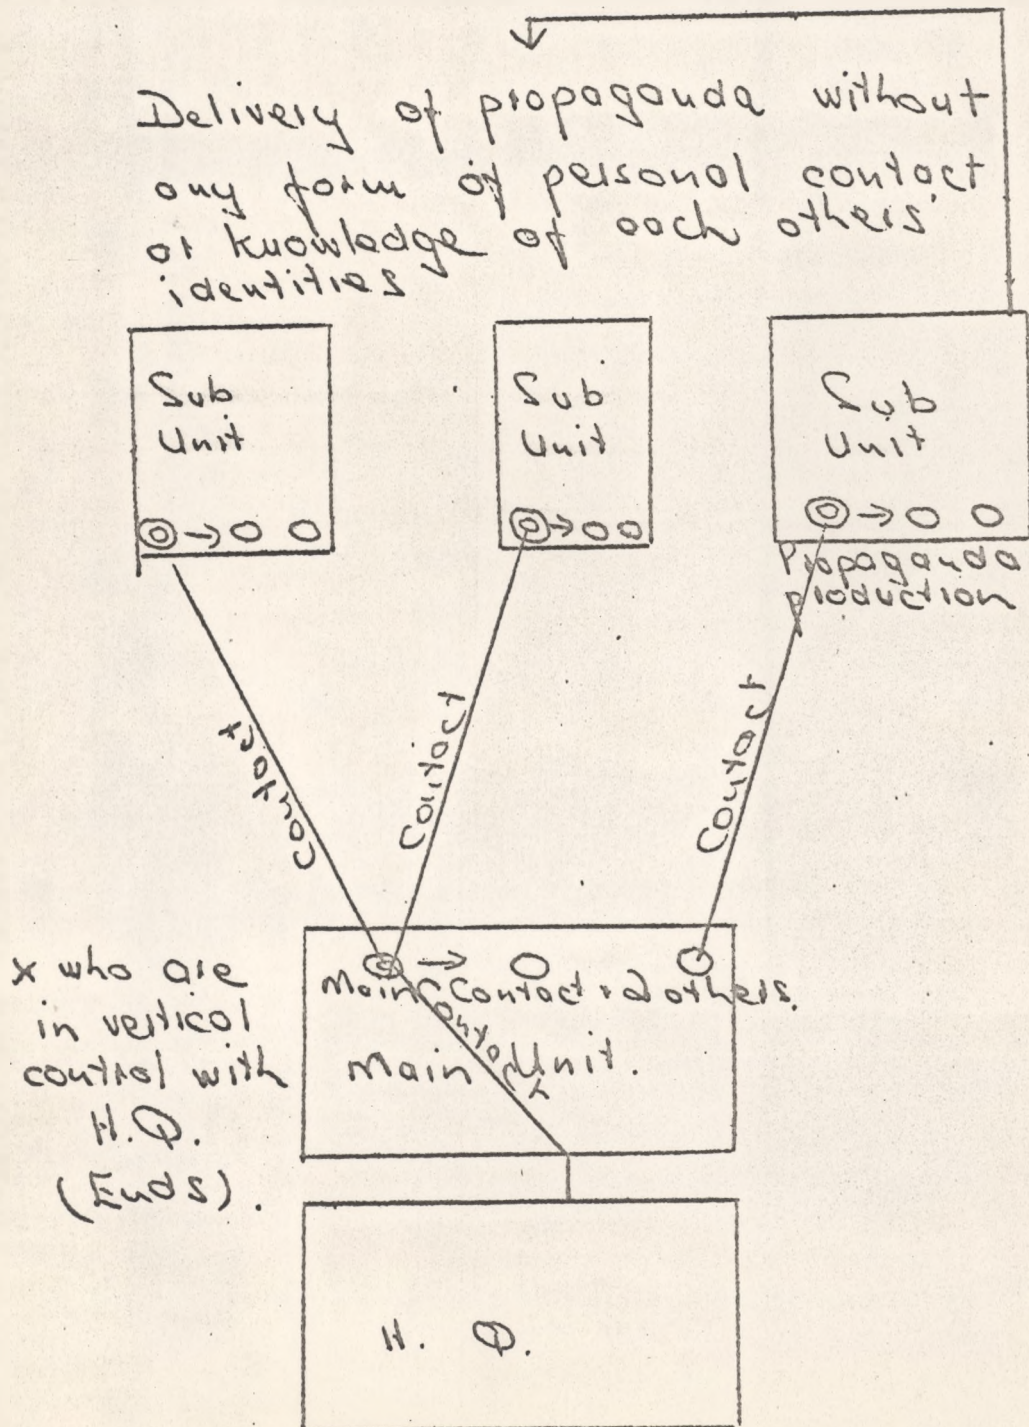 Delivery of propaganda without
any form of personal contact
or knowledge of each others'
identities
Sub
Unit
Sub
Unit
Sub
Unit
Propaganda
production
Contact
Contact
Contact
x who are
in vertical
control with
H.Q.
(Ends).
Main Contact + 2 others.
Contact x
Main Unit.
H. Q.